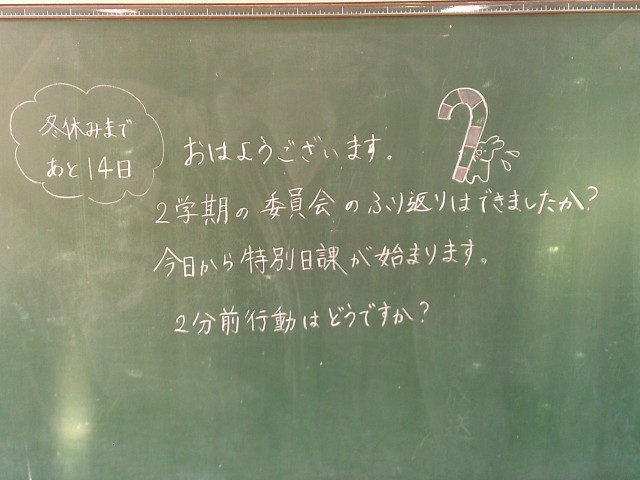 冬休みまで
あと14日
おはようございます。
2学期の委員会のふり返りはできましたか?
今日から特別日課が始まります。
2分前行動はどうですか?